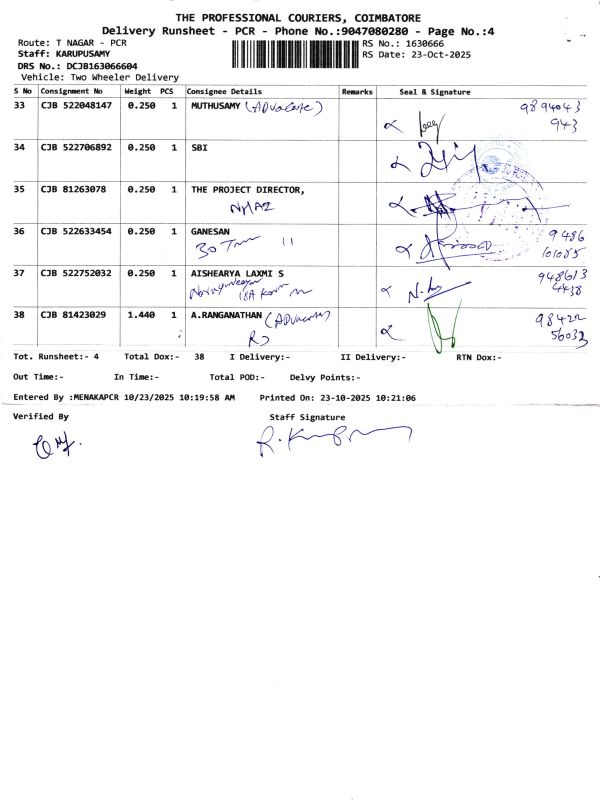 THE PROFESSIONAL COURIERS, COIMBATORE
Delivery Runsheet - PCR - Phone No.:9047080280 - Page No.:4
Route: T NAGAR - PCR
RS No.: 1630666
Staff: KARUPUSAMY
RS Date: 23-Oct-2025
DRS No.: DCJB163066604
Vehicle: Two Wheeler Delivery
S No Consignment No Weight PCS Consignee Details Remarks Seal & Signature
33 CJB 522048147 0.250 1 MUTHUSAMY (ADVocate) 9894043
943
34 CJB 522706892 0.250 1 SBI
35 CJB 81263078 0.250 1 THE PROJECT DIRECTOR,
NHAI
36 CJB 522633454 0.250 1 GANESAN 9486
30 11 101085
37 CJB 522752032 0.250 1 AISHEARYA LAXMI S 948613
18A 4438
38 CJB 81423029 1.440 1 A.RANGANATHAN (ADVocate) 98422
56032
Tot. Runsheet:- 4 Total Dox:- 38 I Delivery:- II Delivery:- RTN Dox:-
Out Time:- In Time:- Total POD:- Delvy Points:-
Entered By :MENAKAPCR 10/23/2025 10:19:58 AM Printed On: 23-10-2025 10:21:06
Verified By Staff Signature